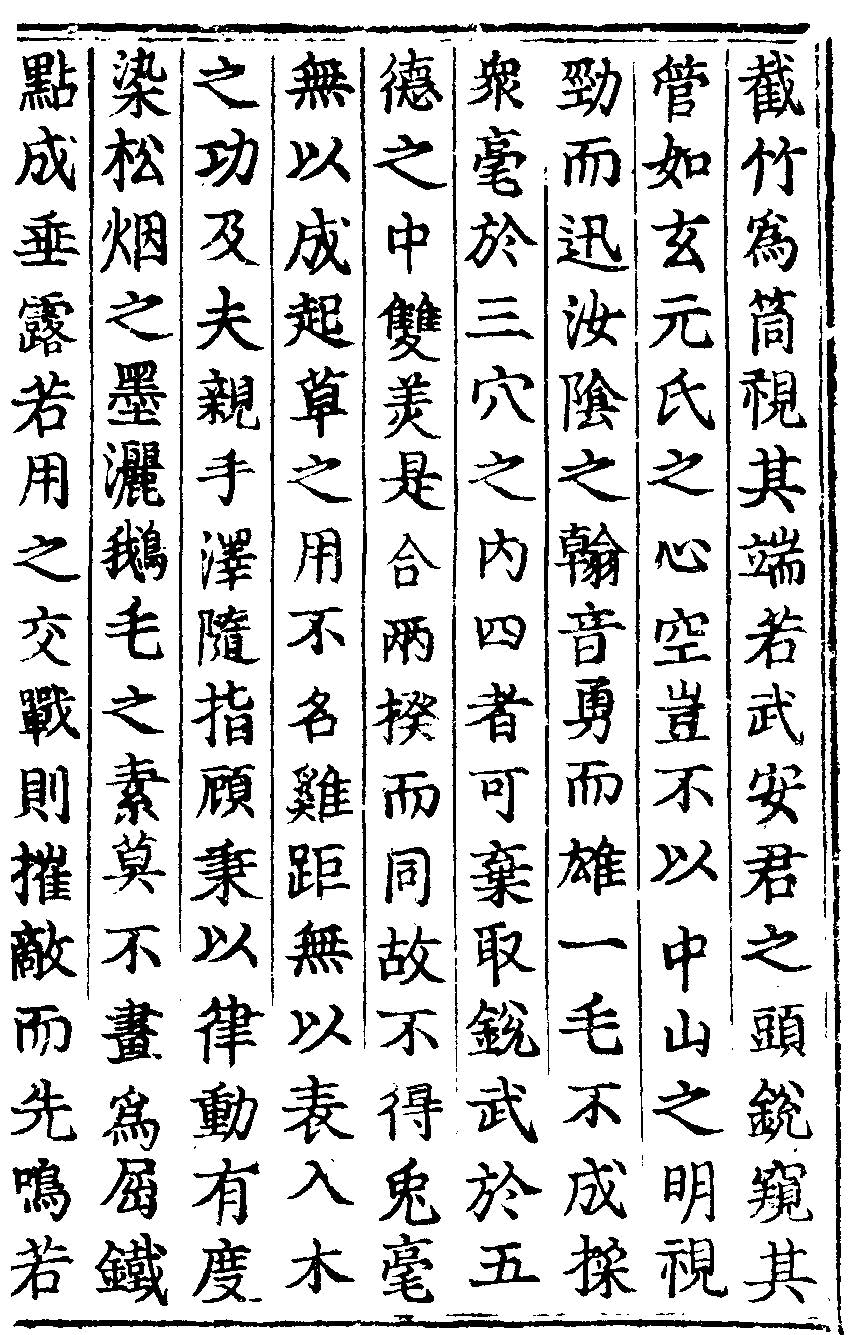 截竹為筒視其端若武安君之頭銳窺其
管如玄元氏之心空豈不以中山之明視
勁而迅汝陰之翰音勇而雄一毛不成採
衆毫於三穴之內四者可棄取銳武於五
德之中雙美是合兩揆而同故不得兎毫
無以成起草之用不名雞距無以表入木
之功及夫親手澤隨指顧秉以律動有度
染松烟之墨灑鵝毛之素莫不畫為屈鐵
點成垂露若用之交戰則摧敵而先鳴若